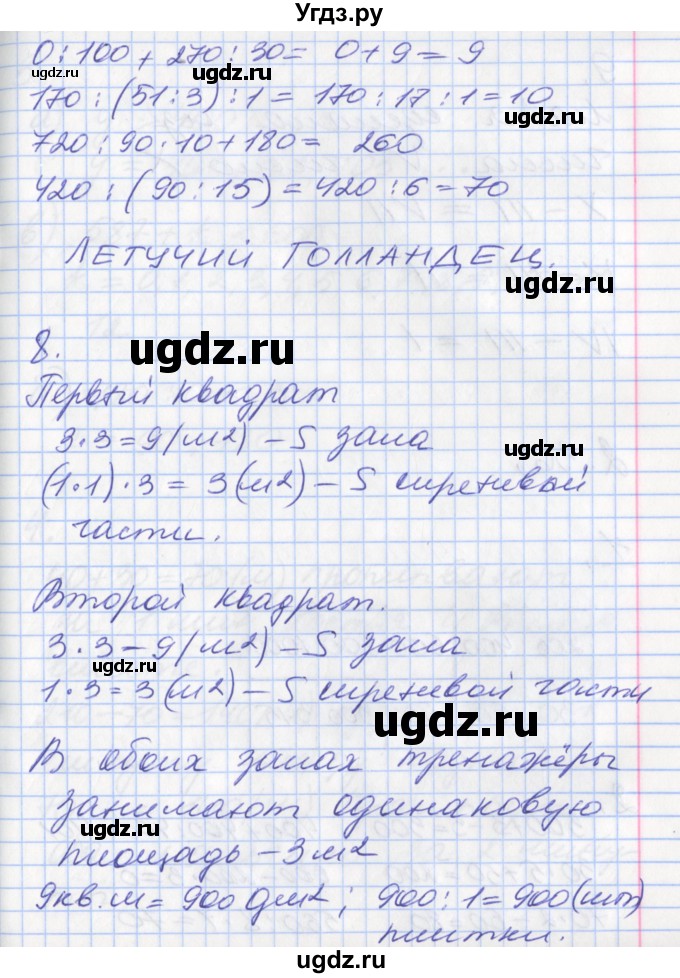 Угдз.ру
0:100 + 270:30 = 0+9 = 9
ugdz.ru ugdz.ru
170 : (51:3) : 1 = 170 : 17 : 1 = 10
720 : 90 · 10 + 180 = 260
420 : (90 : 15) = 420 : 6 = 70
ЛЕТУЧИЙ ГОЛЛАНДЕЦ.
ugdz.ru
8.
ugdz.ru
Первый квадрат
3·3 = 9 (м2) – S зала
ugdz.ru
(1·1)·3 = 3 (м2) – S сиреневый
части.
Второй квадрат.
3·3 – 9 (м2) – S зала
ugdz.ru
1·3 = 3 (м2) – S сиреневой части
ugdz.ru
В обоих залах тренажёры
занимают одинаковую
ugdz.ru
площадь – 3 м2
9кв.м = 900 дм2; 900 : 1 = 900 (шт)
плитки.
ugdz.ru